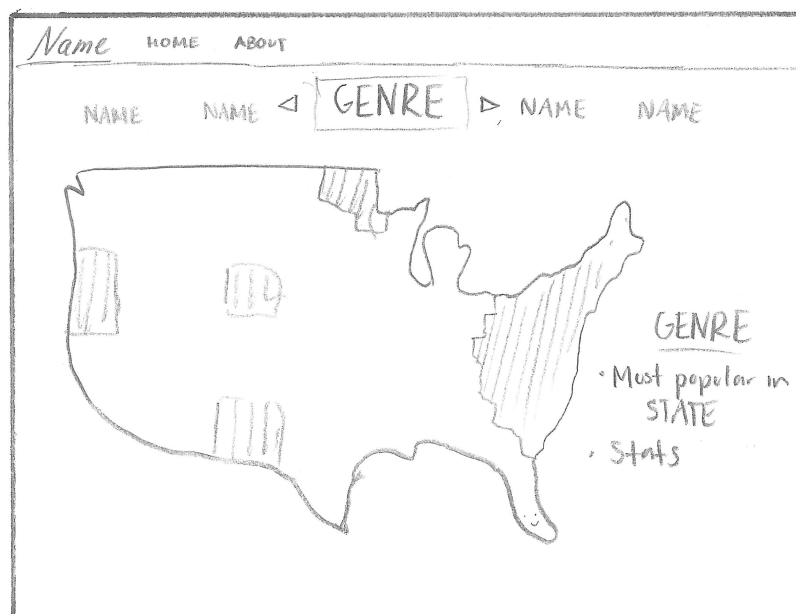 Name HOME ABOUT
NAME NAME GENRE NAME NAME
GENRE
• Most popular in
STATE
• Stats